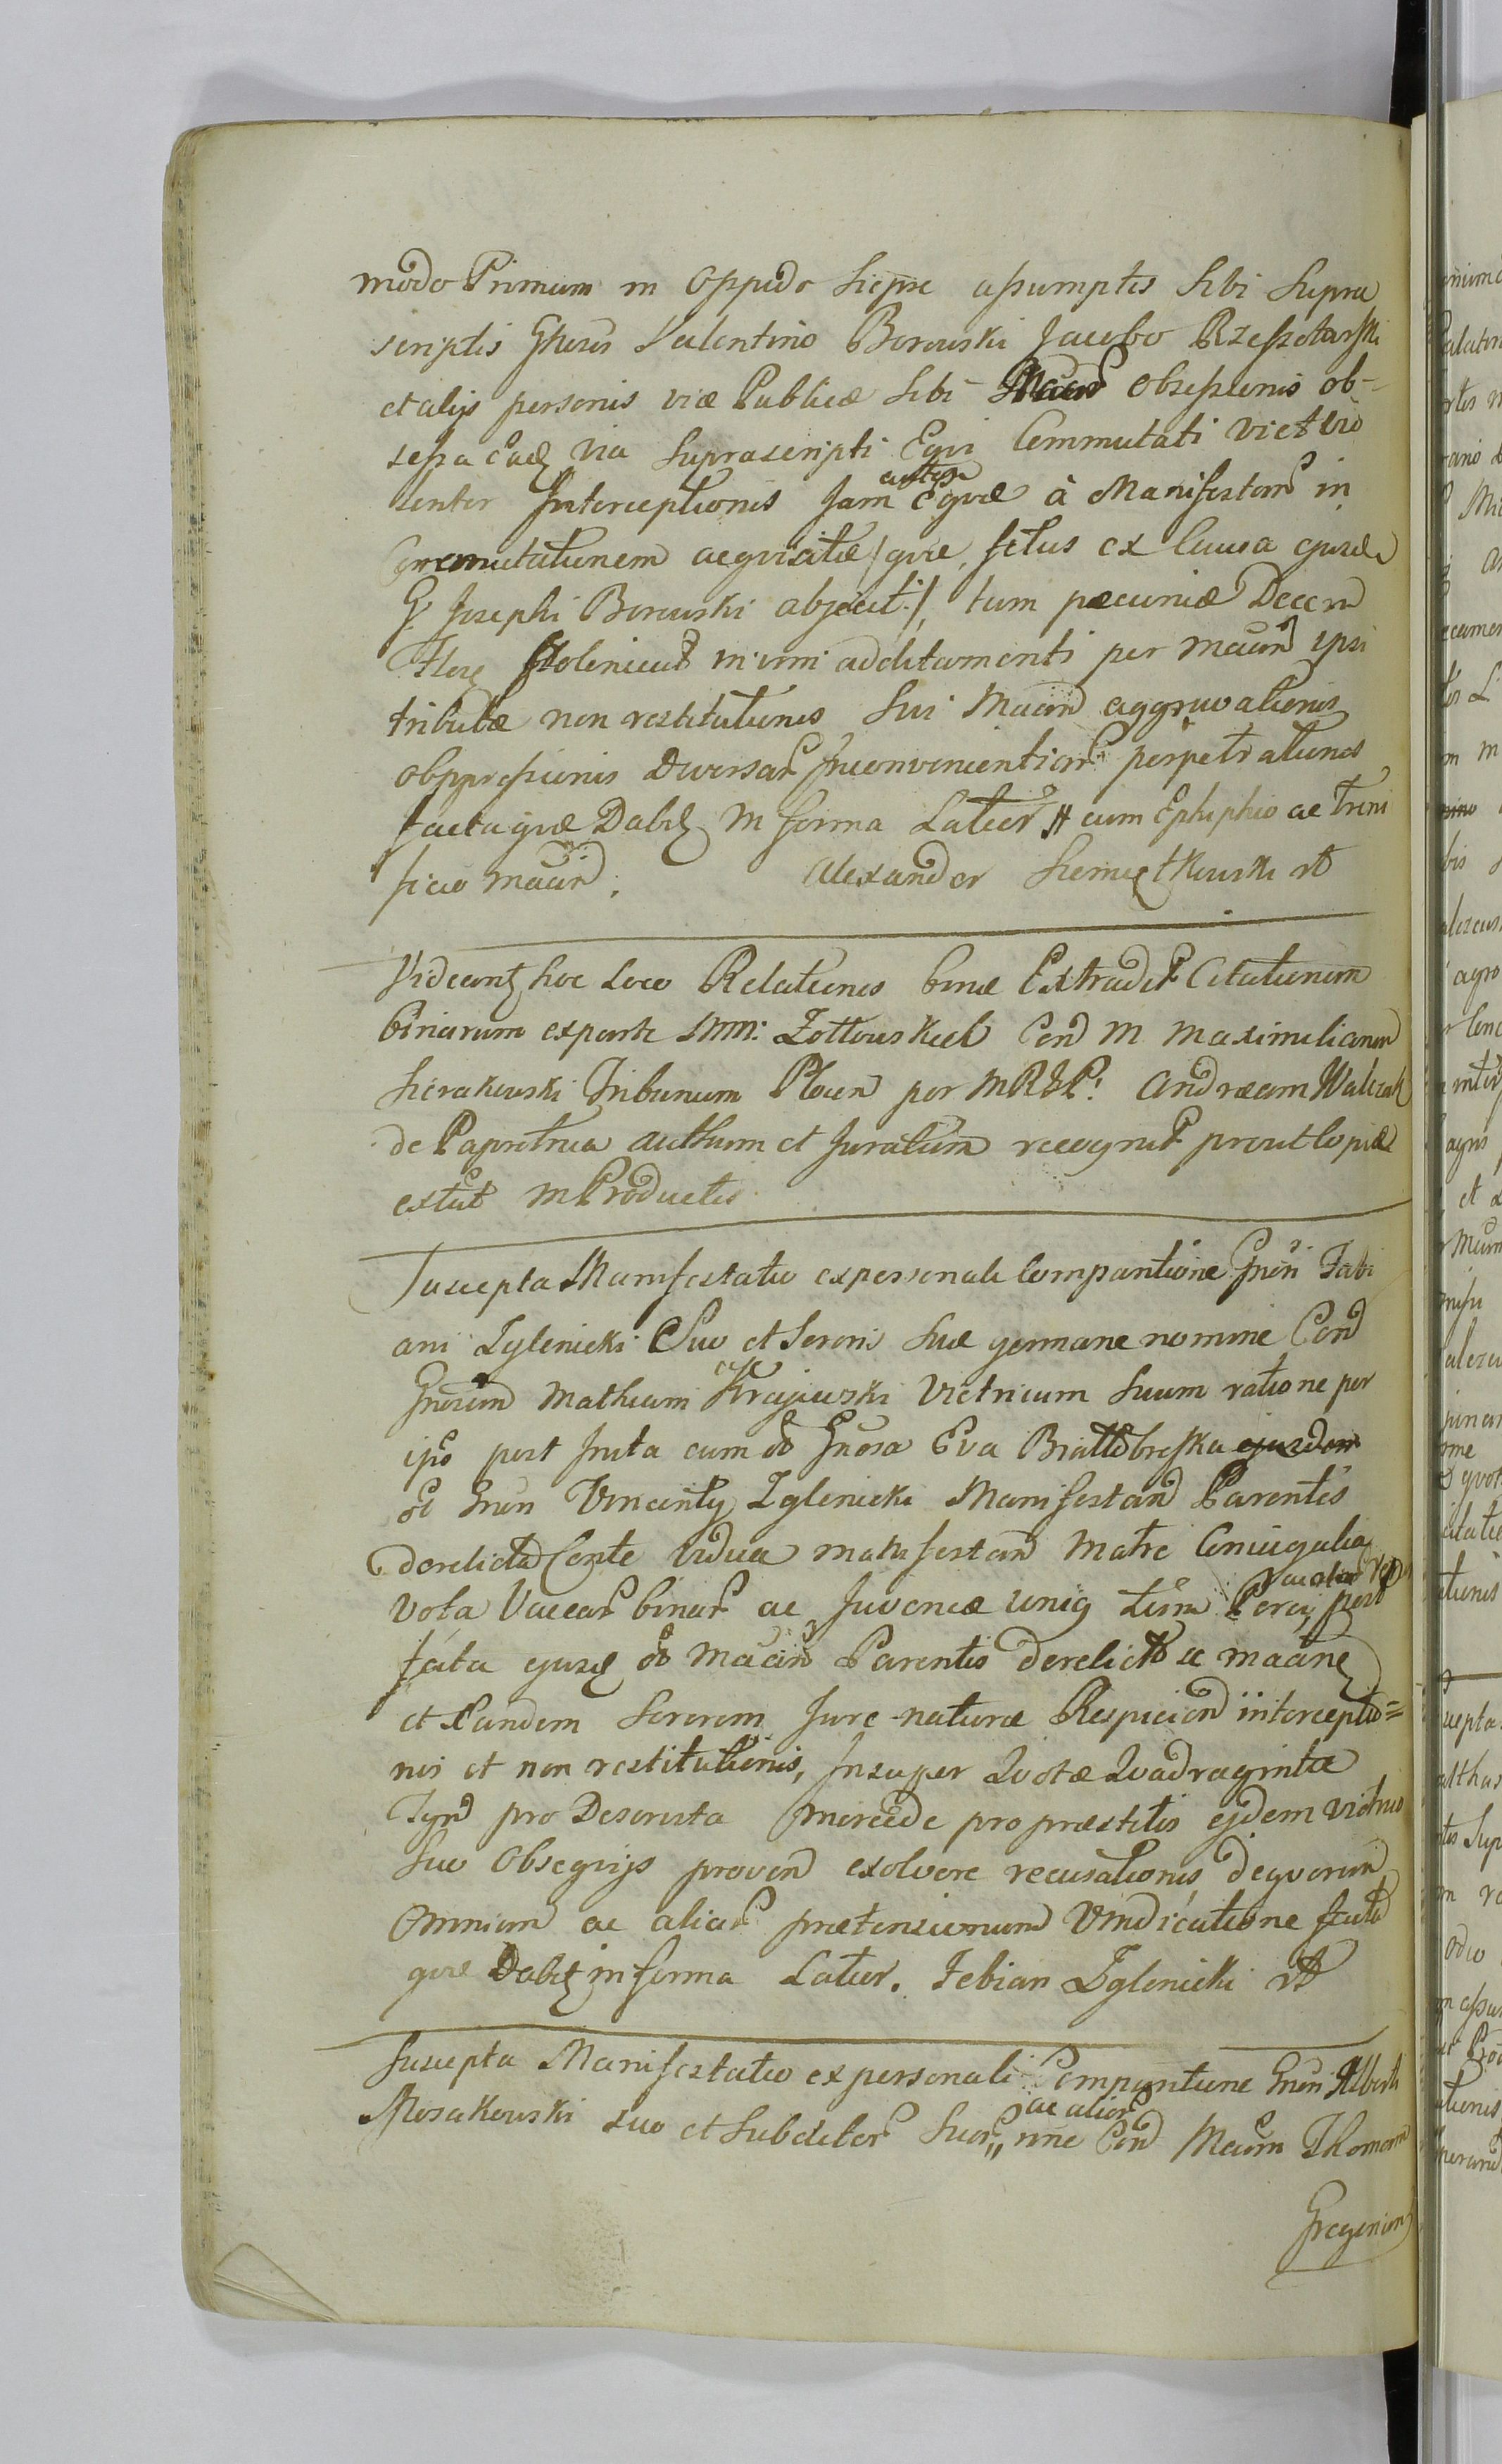 modo Primum in Oppido Siepre assumptis Sibi Supra
scriptis Gnosis Valentino Borowski Jacobo Rzeszotarski
et alijs personis viæ Publicæ Sibi Mand Obsessionis ob-
sessa eadē via Suprascripti Eqvi Commutati
Interceptionis Jam Eqvæ à Manifestañ in
Commutationem aeqvisitæ /qvæ fetus ex Causa ejusdē
G. Josephi Borowski abjecit:/, tum pæcuniæ Decem
Flor Polonical in vim additamenti per Maand ipsi
tributæ non restitutionis Sui Maand aggravationis
obppressionis Diversar Inconvenientiar perpetrationis
factaqvæ Dabit in forma Latior # cum Ephiphio ac freni
ficio Maand. Alexander Siemiętkowski
Videant hoc Loco Relationes binæ Extradit Citationum
binarum ex parte MM: Zołtowskich Con M Maximilianum
Sierakowski Tribunum Ploceñ per MRGL: Andræam Walczak
de Paprotnia authum et Juratum recognit prout Copiæ
extāt in Productis
Suscepta Manifestatio ex personali Comparitione Gnosi Fabi
ani Zglenicki Suo et Sororis Suæ germanæ nomine Con
Gnosum Mathiam Krajewski Victricum Suum ratione per
ipō post Inita cum ōō Gnosa Eva Białobreska ejusdem
ōō Gnosi Vincenty Zglenicki Manifestañ Parentis
derelicta Consorte Vidua manifestañ Matre Coniugalia
Vota Vaccar binar ac Juvencæ uniq post
fata ejusdē ōō Maañ Parentis derelict ac maañe
et Eandem Sororem Jure naturæ Respicien interceptio=
nis et non restitutionis, Insuper Qvotæ Qvadraginta
Tynf pro Deservita mercede pro præstitis ejdem victrico
Suo Obseqvijs proven exolvere recusationis deqvorum
Omnium ac aliar prætensionum Vindicatione facta
qvæ Dabit in forma Latior. Febian Zglenicki
Suscepta Manifestatio ex personali Comparitione Gnosi Alberti
ac alior
Mosakowski suo et Subditor Suor „ nine Con Maum Thomam